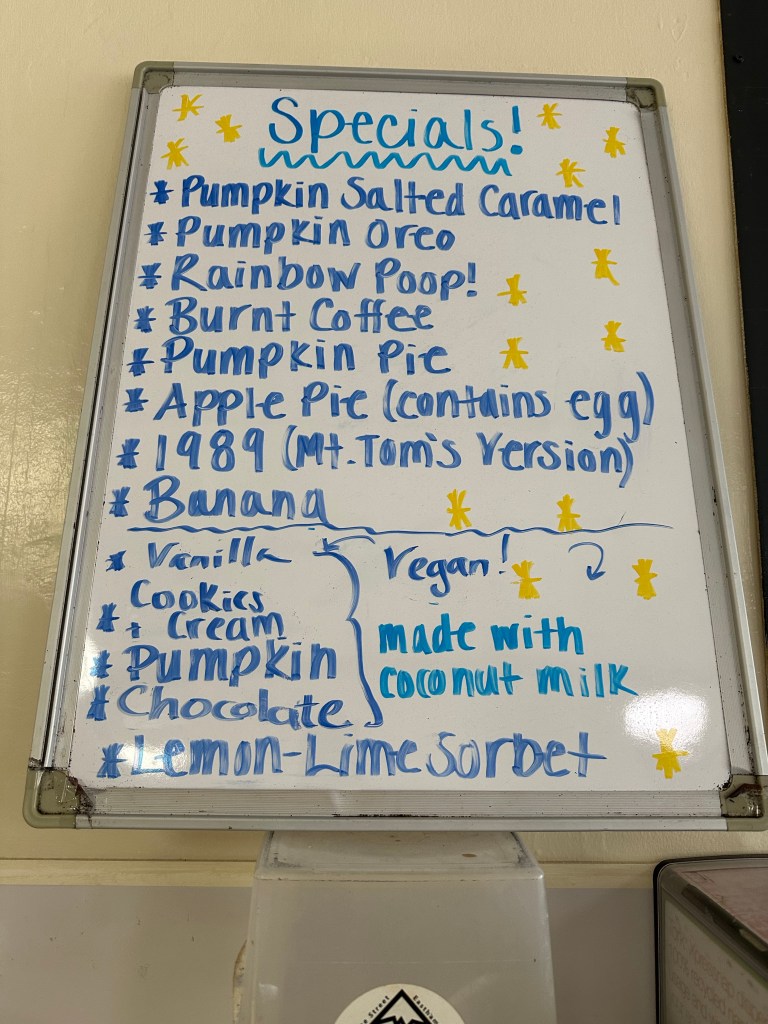 Specials!
* Pumpkin Salted Caramel
* Pumpkin Oreo
* Rainbow Poop!
* Burnt Coffee
* Pumpkin Pie
* Apple Pie (contains egg)
* 1989 (Mt.Tom's Version)
* Banana
* Vanilla
Vegan!
* Cookies
+ Cream
* Pumpkin
* Chocolate
made with
coconut milk
* Lemon-Lime Sorbet
Street
Eastham